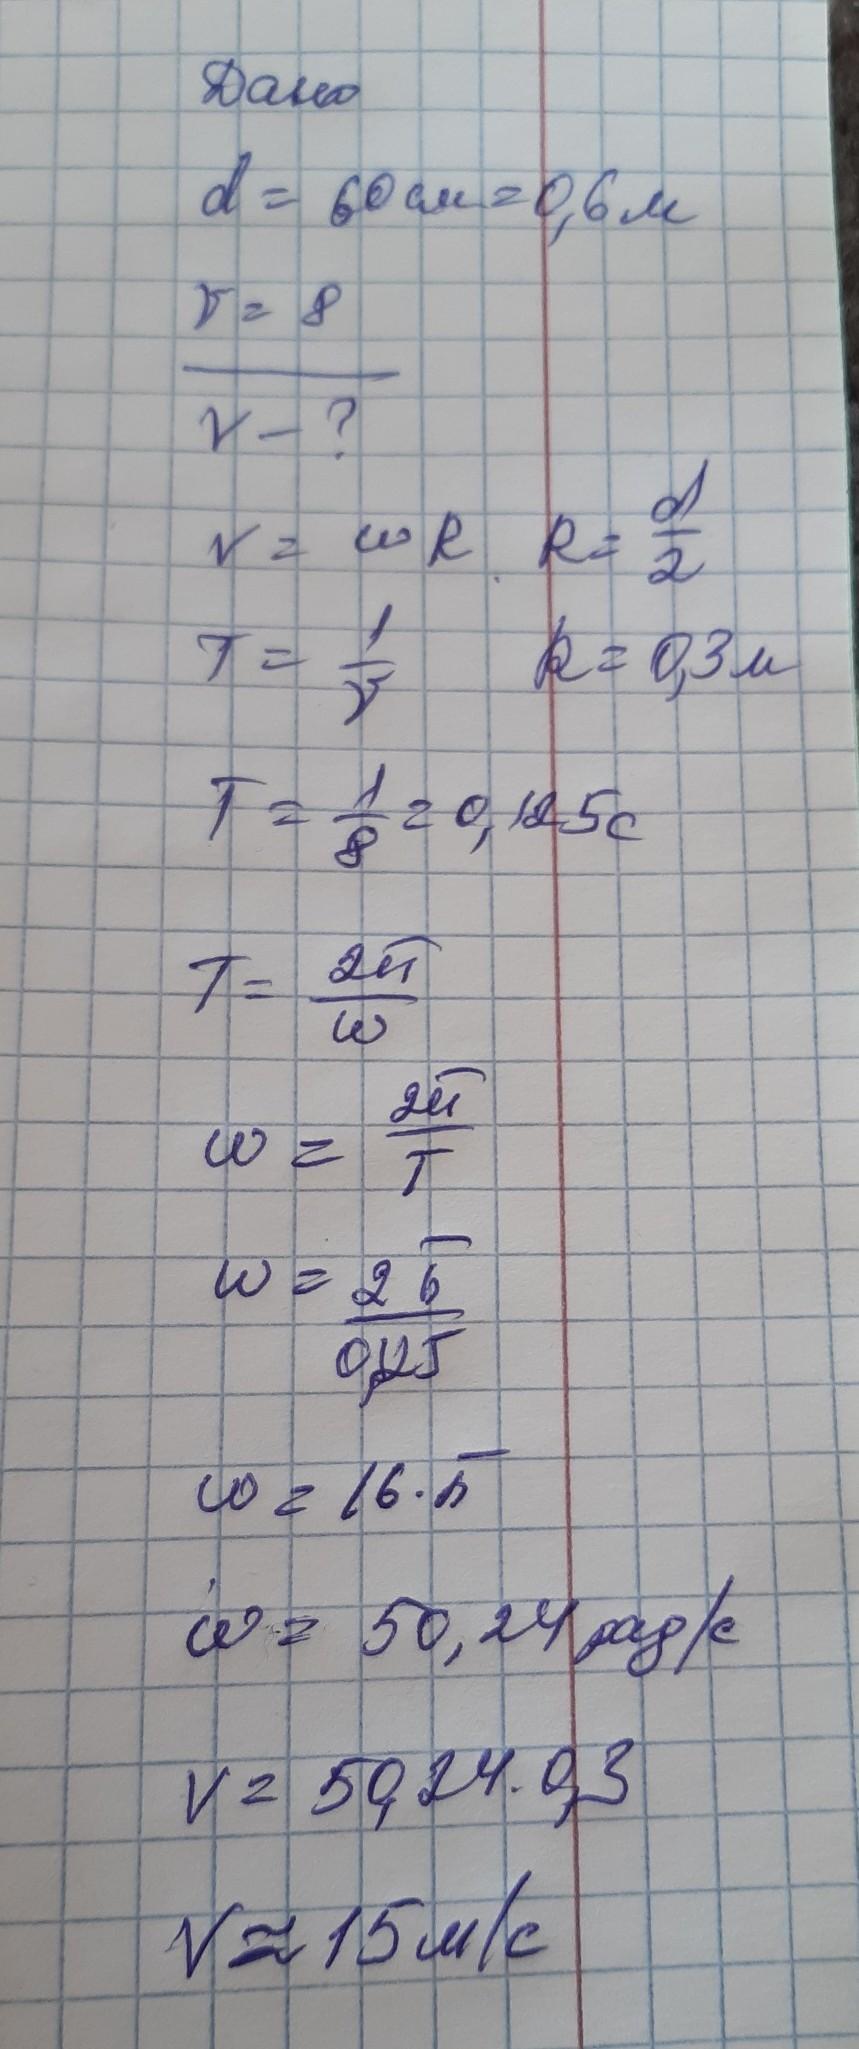 Дано
d = 60 см = 0,6 м
ν = 8
v - ?
v = ωR. R = d/2
T = 1/ν R = 0,3 м
T = 1/8 = 0,125 с
T = 2π/ω
ω = 2π/T
ω = 2π/0,125
ω = 16·π
ω = 50,24 рад/с
v = 50,24·0,3
v ≈ 15 м/с